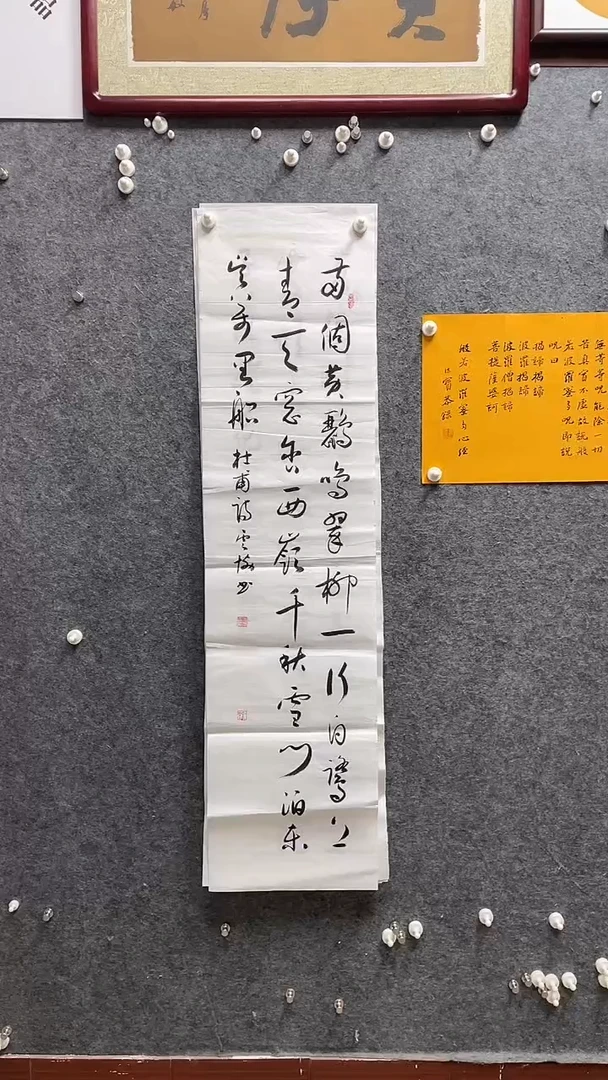 兩個黄鸝鳴翠柳一行白鷺上
青天窓含西嶺千秋雪門泊東
吴萬里船 杜甫詩雲 書
無等等咒能除一切
苦真實不虚故説般
若波羅蜜多咒即説
咒曰
揭諦揭諦
波羅揭諦
波羅僧揭諦
菩提薩婆訶
般若波羅蜜多心經
寶恭録
品